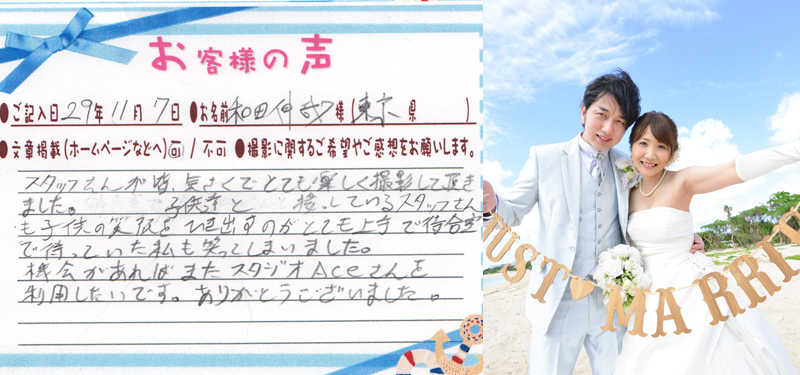 お客様の声
●ご記入日 29年 11月 7日 ●お名前 和田 伸哉 様 (東京 県 )
●文章掲載(ホームページなどへ) 可 / 不可 ●撮影に関するご希望やご感想をお願いします。
スタッフさんが皆、気さくでとても楽しく撮影して頂き
ました。 子供達と 接しているスタッフさん
も子供の笑顔を引き出すのがとても上手で待合室
で待っていた私も笑ってしまいました。
機会があればまたスタジオAceさんを
利用したいです。ありがとうございました。
JUST MARRIE